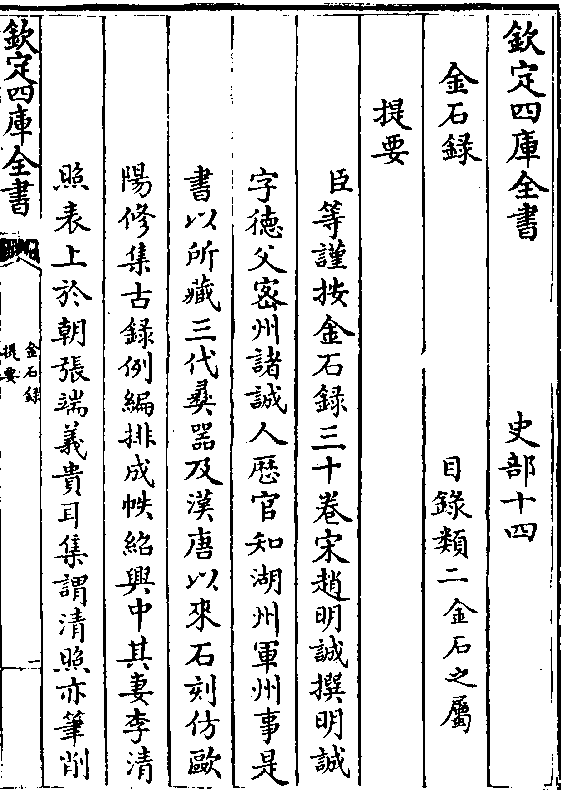 欽定四庫全書　史部十四
金石録　目錄類二金石之屬
提要
臣等謹按金石録三十卷宋趙明誠撰明誠
字德父宻州諸誠人歴官知湖州軍州事是
書以所藏三代彞器及漢唐以來石刻仿歐
陽修集古録例編排成帙紹興中其妻李清
照表上於朝張端義貴耳集謂清照亦筆削
欽定四庫全書
金石録
提要
一